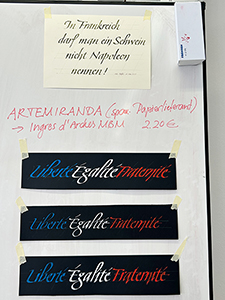 In Frankreich
darf man ein Schwein
nicht Napoleon
nennen!
ARTEMIRANDA (span. Papierlieferant)
→ Ingres d'Arches MBM 2.20 €
Liberté Égalité Fraternité
Liberté Égalité Fraternité
Liberté Égalité Fraternité